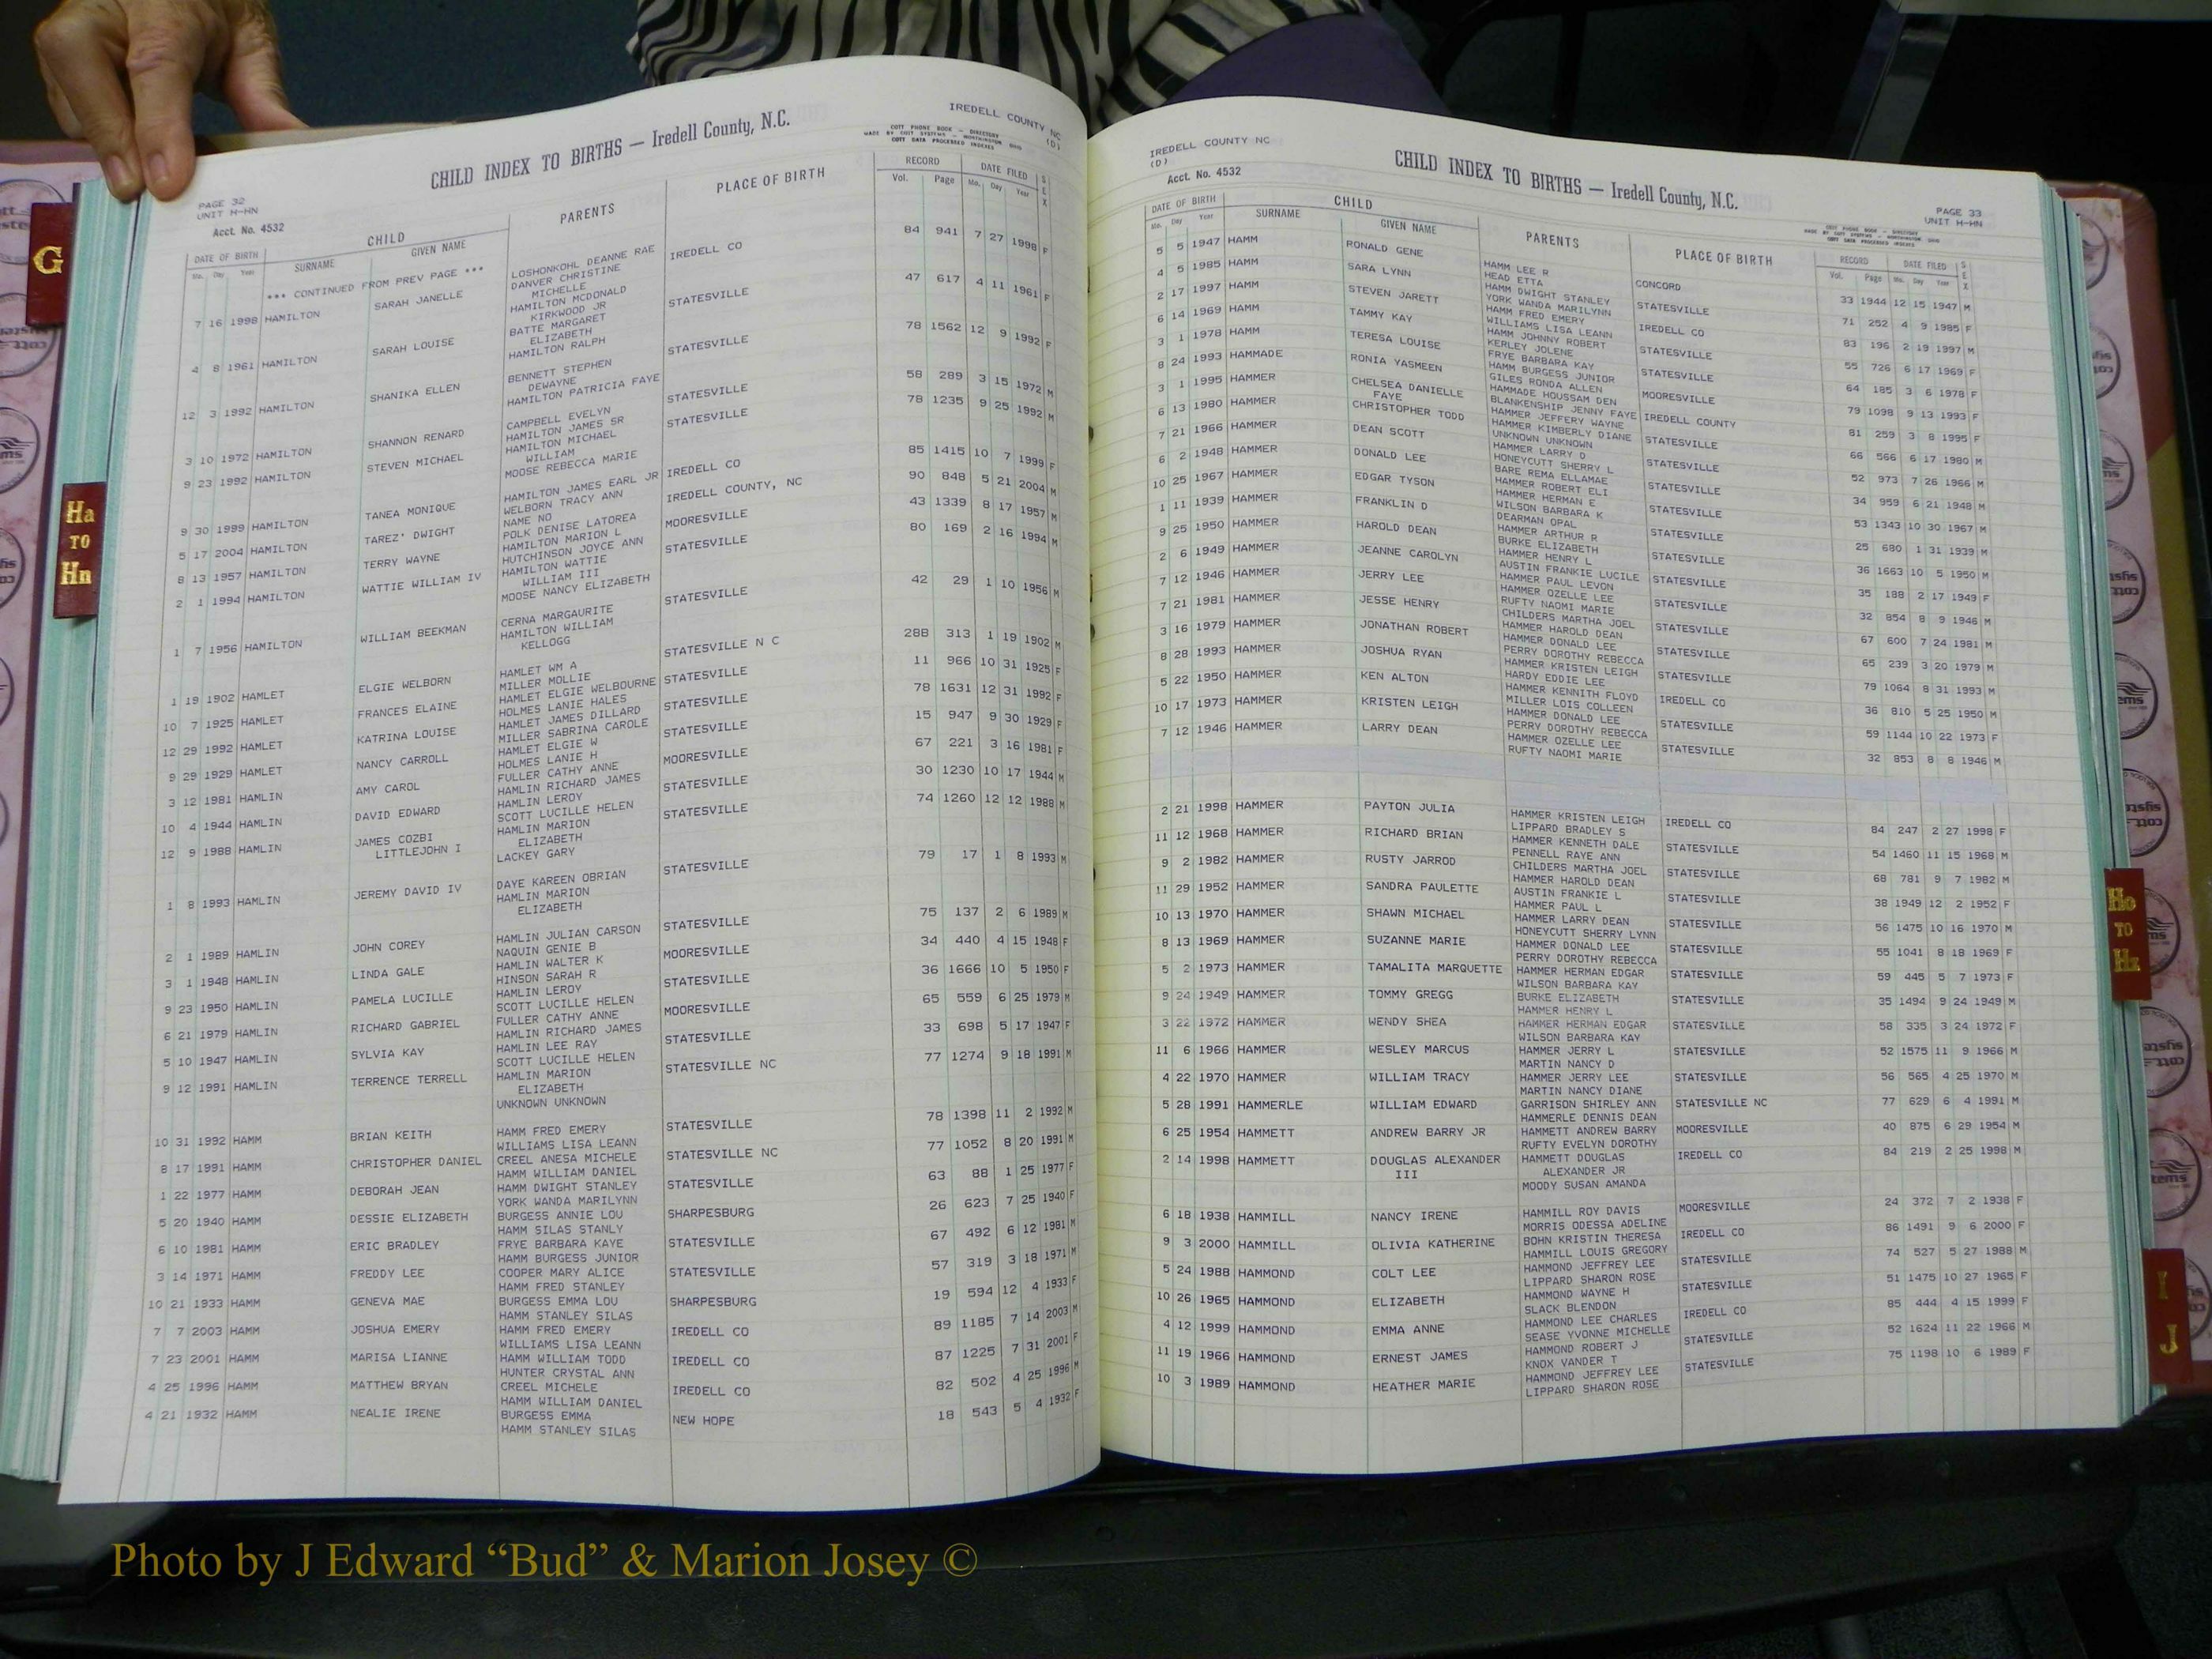 IREDELL COUNTY NC
(D)
CHILD INDEX TO BIRTHS — Iredell County, N.C.
COTT PHONE BOOK — DIRECTORY
MADE BY COTT SYSTEMS — WORTHINGTON OHIO
COTT DATA PROCESSED INDEXES
PAGE 32
UNIT H-HN
Acct. No. 4532
DATE OF BIRTH CHILD PARENTS PLACE OF BIRTH RECORD DATE FILED SEX
Mo. Day Year SURNAME GIVEN NAME Vol. Page Mo. Day Year
*** CONTINUED FROM PREV PAGE ***
LOSHONKOHL DEANNE RAE
7 16 1998 HAMILTON SARAH JANELLE DANVER CHRISTINE IREDELL CO 84 941 7 27 1998 F
MICHELLE
HAMILTON MCDONALD
KIRKWOOD JR
4 8 1961 HAMILTON SARAH LOUISE BATTE MARGARET STATESVILLE 47 617 4 11 1961 F
ELIZABETH
HAMILTON RALPH
12 3 1992 HAMILTON SHANIKA ELLEN BENNETT STEPHEN STATESVILLE 78 1562 12 9 1992 F
DEWAYNE
HAMILTON PATRICIA FAYE
3 10 1972 HAMILTON SHANNON RENARD CAMPBELL EVELYN STATESVILLE 58 289 3 15 1972 M
HAMILTON JAMES SR
9 23 1992 HAMILTON STEVEN MICHAEL HAMILTON MICHAEL STATESVILLE 78 1235 9 25 1992 M
WILLIAM
MOOSE REBECCA MARIE
9 30 1999 HAMILTON TANEA MONIQUE HAMILTON JAMES EARL JR IREDELL CO 85 1415 10 7 1999 F
WELBORN TRACY ANN
5 17 2004 HAMILTON TAREZ' DWIGHT NAME NO IREDELL COUNTY, NC 90 848 5 21 2004 M
POLK DENISE LATOREA
8 13 1957 HAMILTON TERRY WAYNE HAMILTON MARION L MOORESVILLE 43 1339 8 17 1957 M
HUTCHINSON JOYCE ANN
2 1 1994 HAMILTON WATTIE WILLIAM IV HAMILTON WATTIE STATESVILLE 80 169 2 16 1994 M
WILLIAM III
MOOSE NANCY ELIZABETH
1 7 1956 HAMILTON WILLIAM BEEKMAN CERNA MARGAURITE STATESVILLE 42 29 1 10 1956 M
HAMILTON WILLIAM
KELLOGG
1 19 1902 HAMLET ELGIE WELBORN HAMLET WM A STATESVILLE N C 288 313 1 19 1902 M
MILLER MOLLIE
10 7 1925 HAMLET FRANCES ELAINE HAMLET ELGIE WELBOURNE STATESVILLE 11 966 10 31 1925 F
HOLMES LANIE HALES
12 29 1992 HAMLET KATRINA LOUISE HAMLET JAMES DILLARD STATESVILLE 78 1631 12 31 1992 F
MILLER SABRINA CAROLE
9 29 1929 HAMLET NANCY CARROLL HAMLET ELGIE W STATESVILLE 15 947 9 30 1929 F
HOLMES LANIE H
3 12 1981 HAMLIN AMY CAROL FULLER CATHY ANNE MOORESVILLE 67 221 3 16 1981 F
HAMLIN RICHARD JAMES
10 4 1944 HAMLIN DAVID EDWARD HAMLIN LEROY STATESVILLE 30 1230 10 17 1944 M
SCOTT LUCILLE HELEN
12 9 1988 HAMLIN JAMES COZBI HAMLIN MARION STATESVILLE 74 1260 12 12 1988 M
LITTLEJOHN I ELIZABETH
LACKEY GARY
1 8 1993 HAMLIN JEREMY DAVID IV DAYE KAREEN OBRIAN STATESVILLE 79 17 1 8 1993 M
HAMLIN MARION
ELIZABETH
2 1 1989 HAMLIN JOHN COREY HAMLIN JULIAN CARSON STATESVILLE 75 137 2 6 1989 M
NAQUIN GENIE B
3 1 1948 HAMLIN LINDA GALE HAMLIN WALTER K MOORESVILLE 34 440 4 15 1948 F
HINSON SARAH R
9 23 1950 HAMLIN PAMELA LUCILLE HAMLIN LEROY STATESVILLE 36 1666 10 5 1950 F
SCOTT LUCILLE HELEN
6 21 1979 HAMLIN RICHARD GABRIEL FULLER CATHY ANNE MOORESVILLE 65 559 6 25 1979 M
HAMLIN RICHARD JAMES
5 10 1947 HAMLIN SYLVIA KAY HAMLIN LEE RAY STATESVILLE 33 698 5 17 1947 F
SCOTT LUCILLE HELEN
9 12 1991 HAMLIN TERRENCE TERRELL HAMLIN MARION STATESVILLE NC 77 1274 9 18 1991 M
ELIZABETH
UNKNOWN UNKNOWN
10 31 1992 HAMM BRIAN KEITH HAMM FRED EMERY STATESVILLE 78 1398 11 2 1992 M
WILLIAMS LISA LEANN
8 17 1991 HAMM CHRISTOPHER DANIEL CREEL ANESA MICHELE STATESVILLE NC 77 1052 8 20 1991 M
HAMM WILLIAM DANIEL
1 22 1977 HAMM DEBORAH JEAN HAMM DWIGHT STANLEY STATESVILLE 63 88 1 25 1977 F
YORK WANDA MARILYNN
5 20 1940 HAMM DESSIE ELIZABETH BURGESS ANNIE LOU SHARPESBURG 26 623 7 25 1940 F
HAMM SILAS STANLY
6 10 1981 HAMM ERIC BRADLEY FRYE BARBARA KAYE STATESVILLE 67 492 6 12 1981 M
HAMM BURGESS JUNIOR
3 14 1971 HAMM FREDDY LEE COOPER MARY ALICE STATESVILLE 57 319 3 18 1971 M
HAMM FRED STANLEY
10 21 1933 HAMM GENEVA MAE BURGESS EMMA LOU SHARPESBURG 19 594 12 4 1933 F
HAMM STANLEY SILAS
7 7 2003 HAMM JOSHUA EMERY HAMM FRED EMERY IREDELL CO 89 1185 7 14 2003 M
WILLIAMS LISA LEANN
7 23 2001 HAMM MARISA LIANNE HAMM WILLIAM TODD IREDELL CO 87 1225 7 31 2001 F
HUNTER CRYSTAL ANN
4 25 1996 HAMM MATTHEW BRYAN CREEL MICHELE IREDELL CO 82 502 4 25 1996 M
HAMM WILLIAM DANIEL
4 21 1932 HAMM NEALIE IRENE BURGESS EMMA NEW HOPE 18 543 5 4 1932 F
HAMM STANLEY SILAS
IREDELL COUNTY NC
(D)
Acct. No. 4532
CHILD INDEX TO BIRTHS — Iredell County, N.C.
PAGE 33
UNIT H-HN
COTT PHONE BOOK — DIRECTORY
MADE BY COTT SYSTEMS — WORTHINGTON OHIO
COTT DATA PROCESSED INDEXES
DATE OF BIRTH CHILD PARENTS PLACE OF BIRTH RECORD DATE FILED SEX
Mo. Day Year SURNAME GIVEN NAME Vol. Page Mo. Day Year
5 5 1947 HAMM RONALD GENE HAMM LEE R CONCORD 33 1944 12 15 1947 M
HEAD ETTA
4 5 1985 HAMM SARA LYNN HAMM DWIGHT STANLEY STATESVILLE 71 252 4 9 1985 F
YORK WANDA MARILYNN
2 17 1997 HAMM STEVEN JARETT HAMM FRED EMERY IREDELL CO 83 196 2 19 1997 M
WILLIAMS LISA LEANN
6 14 1969 HAMM TAMMY KAY HAMM JOHNNY ROBERT STATESVILLE 55 726 6 17 1969 F
KERLEY JOLENE
3 1 1978 HAMM TERESA LOUISE FRYE BARBARA KAY STATESVILLE 64 185 3 6 1978 F
HAMM BURGESS JUNIOR
8 24 1993 HAMMADE RONIA YASMEEN GILES RONDA ALLEN MOORESVILLE 79 1098 9 13 1993 F
HAMMADE HOUSSAM DEN
3 1 1995 HAMMER CHELSEA DANIELLE BLANKENSHIP JENNY FAYE IREDELL COUNTY 81 259 3 8 1995 F
FAYE HAMMER JEFFERY WAYNE
6 13 1980 HAMMER CHRISTOPHER TODD HAMMER KIMBERLY DIANE STATESVILLE 66 566 6 17 1980 M
UNKNOWN UNKNOWN
7 21 1966 HAMMER DEAN SCOTT HAMMER LARRY D STATESVILLE 52 973 7 26 1966 M
HONEYCUTT SHERRY L
6 2 1948 HAMMER DONALD LEE BARE REMA ELLAMAE STATESVILLE 34 959 6 21 1948 M
HAMMER ROBERT ELI
10 25 1967 HAMMER EDGAR TYSON HAMMER HERMAN E STATESVILLE 53 1343 10 30 1967 M
WILSON BARBARA K
1 11 1939 HAMMER FRANKLIN D DEARMAN OPAL 25 680 1 31 1939 M
HAMMER ARTHUR R
9 25 1950 HAMMER HAROLD DEAN BURKE ELIZABETH STATESVILLE 36 1663 10 5 1950 M
HAMMER HENRY L
2 6 1949 HAMMER JEANNE CAROLYN AUSTIN FRANKIE LUCILE STATESVILLE 35 188 2 17 1949 F
HAMMER PAUL LEVON
7 12 1946 HAMMER JERRY LEE HAMMER OZELLE LEE STATESVILLE 32 854 8 9 1946 M
RUFTY NAOMI MARIE
7 21 1981 HAMMER JESSE HENRY CHILDERS MARTHA JOEL STATESVILLE 67 600 7 24 1981 M
HAMMER HAROLD DEAN
3 16 1979 HAMMER JONATHAN ROBERT HAMMER DONALD LEE STATESVILLE 65 239 3 20 1979 M
PERRY DOROTHY REBECCA
8 28 1993 HAMMER JOSHUA RYAN HAMMER KRISTEN LEIGH STATESVILLE 79 1064 8 31 1993 M
HARDY EDDIE LEE
5 22 1950 HAMMER KEN ALTON HAMMER KENNITH FLOYD IREDELL CO 36 810 5 25 1950 M
MILLER LOIS COLLEEN
10 17 1973 HAMMER KRISTEN LEIGH HAMMER DONALD LEE STATESVILLE 59 1144 10 22 1973 F
PERRY DOROTHY REBECCA
7 12 1946 HAMMER LARRY DEAN HAMMER OZELLE LEE STATESVILLE 32 853 8 8 1946 M
RUFTY NAOMI MARIE
2 21 1998 HAMMER PAYTON JULIA HAMMER KRISTEN LEIGH IREDELL CO 84 247 2 27 1998 F
LIPPARD BRADLEY S
11 12 1968 HAMMER RICHARD BRIAN HAMMER KENNETH DALE STATESVILLE 54 1460 11 15 1968 M
PENNELL RAYE ANN
9 2 1982 HAMMER RUSTY JARROD CHILDERS MARTHA JOEL STATESVILLE 68 781 9 7 1982 M
HAMMER HAROLD DEAN
11 29 1952 HAMMER SANDRA PAULETTE AUSTIN FRANKIE L STATESVILLE 38 1949 12 2 1952 F
HAMMER PAUL L
10 13 1970 HAMMER SHAWN MICHAEL HAMMER LARRY DEAN STATESVILLE 56 1475 10 16 1970 M
HONEYCUTT SHERRY LYNN
8 13 1969 HAMMER SUZANNE MARIE HAMMER DONALD LEE STATESVILLE 55 1041 8 18 1969 F
PERRY DOROTHY REBECCA
5 2 1973 HAMMER TAMALITA MARQUETTE HAMMER HERMAN EDGAR STATESVILLE 59 445 5 7 1973 F
WILSON BARBARA KAY
9 24 1949 HAMMER TOMMY GREGG BURKE ELIZABETH STATESVILLE 35 1494 9 24 1949 M
HAMMER HENRY L
3 22 1972 HAMMER WENDY SHEA HAMMER HERMAN EDGAR STATESVILLE 58 335 3 24 1972 F
WILSON BARBARA KAY
11 6 1966 HAMMER WESLEY MARCUS HAMMER JERRY L STATESVILLE 52 1575 11 9 1966 M
MARTIN NANCY D
4 22 1970 HAMMER WILLIAM TRACY HAMMER JERRY LEE STATESVILLE 56 565 4 25 1970 M
MARTIN NANCY DIANE
5 28 1991 HAMMERLE WILLIAM EDWARD GARRISON SHIRLEY ANN STATESVILLE NC 77 629 6 4 1991 M
HAMMERLE DENNIS DEAN
6 25 1954 HAMMETT ANDREW BARRY JR HAMMETT ANDREW BARRY MOORESVILLE 40 875 6 29 1954 M
RUFTY EVELYN DOROTHY
2 14 1998 HAMMETT DOUGLAS ALEXANDER HAMMETT DOUGLAS IREDELL CO 84 219 2 25 1998 M
III ALEXANDER JR
MOODY SUSAN AMANDA
6 18 1938 HAMMILL NANCY IRENE HAMMILL ROY DAVIS MOORESVILLE 24 372 7 2 1938 F
MORRIS ODESSA ADELINE
9 3 2000 HAMMILL OLIVIA KATHERINE BOHN KRISTIN THERESA IREDELL CO 86 1491 9 6 2000 F
HAMMILL LOUIS GREGORY
5 24 1988 HAMMOND COLT LEE HAMMOND JEFFREY LEE STATESVILLE 74 527 5 27 1988 M
LIPPARD SHARON ROSE
10 26 1965 HAMMOND ELIZABETH HAMMOND WAYNE H STATESVILLE 51 1475 10 27 1965 F
SLACK BLENDON
4 12 1999 HAMMOND EMMA ANNE HAMMOND LEE CHARLES IREDELL CO 85 444 4 15 1999 F
SEASE YVONNE MICHELLE
11 19 1966 HAMMOND ERNEST JAMES HAMMOND ROBERT J STATESVILLE 52 1624 11 22 1966 M
KNOX VANDER T
10 3 1989 HAMMOND HEATHER MARIE HAMMOND JEFFREY LEE STATESVILLE 75 1198 10 6 1989 F
LIPPARD SHARON ROSE
G
Ha
TO
Hn
Ho
TO
Hz
I
J
Photo by J Edward “Bud” & Marion Josey ©